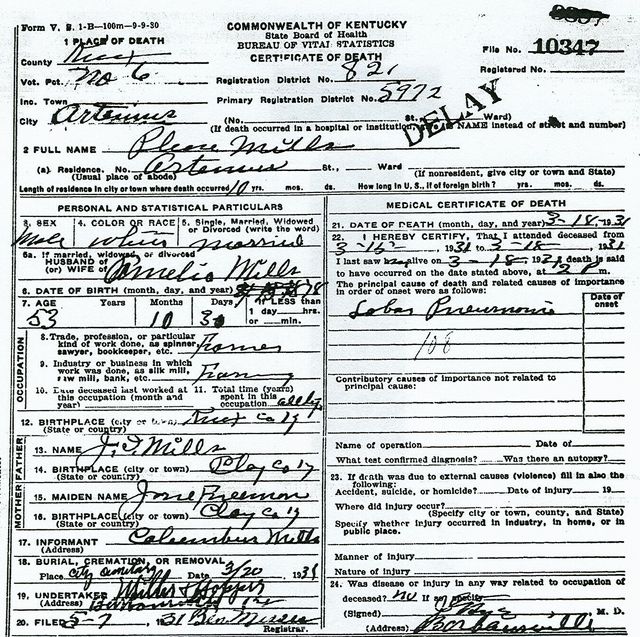 Form V. S. 1-B—100m—9-9-30
COMMONWEALTH OF KENTUCKY
State Board of Health
BUREAU OF VITAL STATISTICS
CERTIFICATE OF DEATH
File No. 10347
Registered No.
1 PLACE OF DEATH
County Knox
Vot. Pct. No 6
Registration District No. 821
Inc. Town
Primary Registration District No. 5972
City Artemus
(No. St. Ward)
DELAY
(If death occurred in a hospital or institution, NAME instead of street and number)
2 FULL NAME Mills
(a) Residence. No. Artemus St., Ward
(Usual place of abode)
(If nonresident, give city or town and State)
Length of residence in city or town where death occurred 10 yrs. mos. ds. How long in U. S., if of foreign birth? yrs. mos. ds.
PERSONAL AND STATISTICAL PARTICULARS
3. SEX Male
4. COLOR OR RACE White
5. Single, Married, Widowed or Divorced (write the word) Married
5a. If married, widowed, or divorced
HUSBAND of
(or) WIFE of Mills
6. DATE OF BIRTH (month, day, and year)
7. AGE Years Months Days If LESS than
1 day hrs.
or min.
53 10
OCCUPATION
8. Trade, profession, or particular
kind of work done, as spinner,
sawyer, bookkeeper, etc. Farmer
9. Industry or business in which
work was done, as silk mill,
saw mill, bank, etc. Farming
10. Date deceased last worked at
this occupation (month and
year)
11. Total time (years)
spent in this
occupation
12. BIRTHPLACE (city or town) Knox Co Ky
(State or country)
FATHER
13. NAME Mills
14. BIRTHPLACE (city or town) Clay Co Ky
(State or country)
MOTHER
15. MAIDEN NAME Freeman
16. BIRTHPLACE (city or town) Clay Co Ky
(State or country)
17. INFORMANT Columbus Mills
(Address)
18. BURIAL, CREMATION, OR REMOVAL
Place City Cemetary Date 3/20 1931
19. UNDERTAKER Mills
(Address) Barbourville Ky
20. FILED 5-7, 1931 Registrar.
MEDICAL CERTIFICATE OF DEATH
21. DATE OF DEATH (month, day, and year) 3-18-1931
22. I HEREBY CERTIFY, That I attended deceased from
1931 to 3-18, 1931
I last saw alive on 3-18, 1931 death is said
to have occurred on the date stated above, at m.
The principal cause of death and related causes of importance
in order of onset were as follows:
Date of onset
Lobar Pneumonia
108
Contributory causes of importance not related to
principal cause:
Name of operation Date of
What test confirmed diagnosis? Was there an autopsy?
23. If death was due to external causes (violence) fill in also the
following:
Accident, suicide, or homicide? Date of injury 19
Where did injury occur?
(Specify city or town, county, and State)
Specify whether injury occurred in industry, in home, or in
public place.
Manner of injury
Nature of injury
24. Was disease or injury in any way related to occupation of
deceased? No If so, specify
(Signed) M. D.
(Address) Barbourville